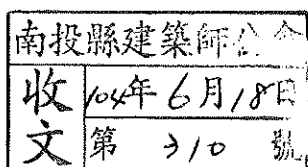 南投縣建築師公會
收文
104年6月18日
第 310 號